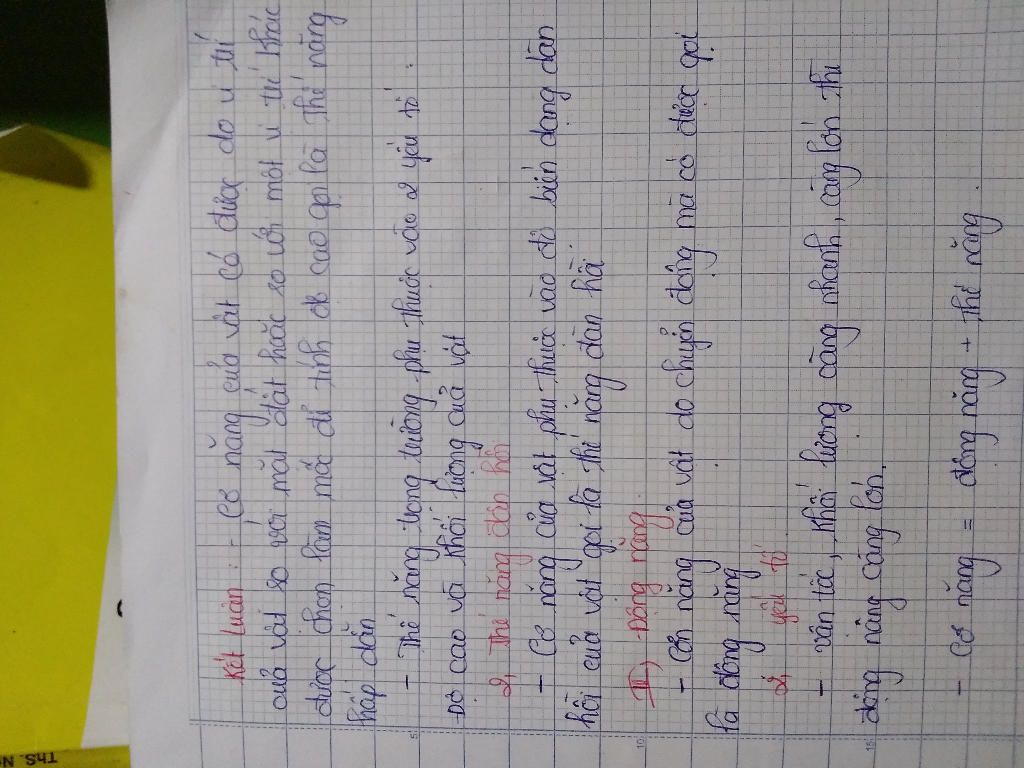 Kết luận : - Cơ năng của vật có được do vị trí
của vật so với mặt đất hoặc so với một vị trí khác
được chọn làm mốc để tính độ cao gọi là Thế năng
hấp dẫn
- Thế năng trọng trường phụ thuộc vào 2 yếu tố :
Độ cao và khối lượng của vật
2, Thế năng đàn hồi
- Cơ năng của vật phụ thuộc vào độ biến dạng đàn
hồi của vật gọi là thế năng đàn hồi.
II) Động năng.
- Cơ năng của vật do chuyển động mà có được gọi
là động năng
2, yếu tố
- vận tốc, khối lượng càng nhanh, càng lớn thì
động năng càng lớn.
- Cơ năng = động năng + thế năng.
5
10
15
ThS. N